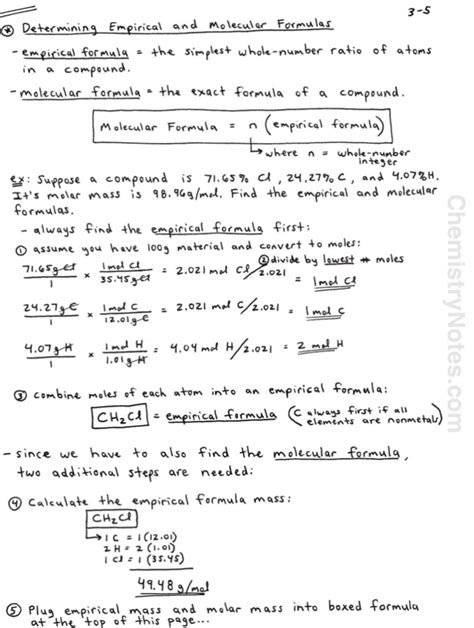 3-5
* Determining Empirical and Molecular Formulas
- empirical formula = the simplest whole-number ratio of atoms
in a compound.
- molecular formula = the exact formula of a compound.
Molecular Formula = n (empirical formula)
where n = whole-number
integer
ex: Suppose a compound is 71.65% Cl, 24.27% C, and 4.07% H.
It's molar mass is 98.96g/mol. Find the empirical and molecular
formulas.
- always find the empirical formula first:
① assume you have 100g material and convert to moles:
② divide by lowest # moles
71.65g Cl / 1 × 1 mol Cl / 35.45g Cl = 2.021 mol Cl / 2.021 = 1 mol Cl
24.27g C / 1 × 1 mol C / 12.01g C = 2.021 mol C / 2.021 = 1 mol C
4.07g H / 1 × 1 mol H / 1.01g H = 4.04 mol H / 2.021 = 2 mol H
③ combine moles of each atom into an empirical formula:
CH₂Cl = empirical formula (C always first if all
elements are nonmetals)
- since we have to also find the molecular formula,
two additional steps are needed:
④ Calculate the empirical formula mass:
CH₂Cl
1 C = 1(12.01)
2 H = 2(1.01)
1 Cl = 1(35.45)
49.48 g/mol
⑤ Plug empirical mass and molar mass into boxed formula
at the top of this page...
ChemistryNotes.com